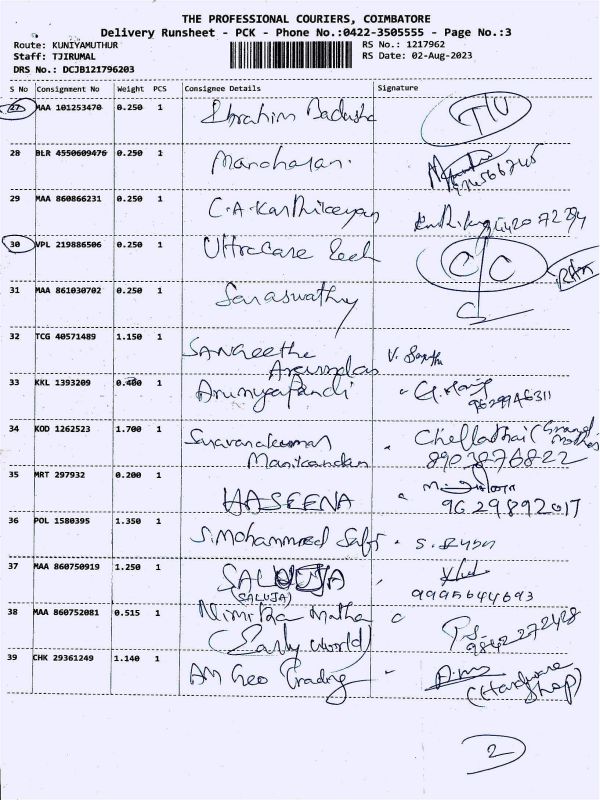 THE PROFESSIONAL COURIERS, COIMBATORE
Delivery Runsheet - PCK - Phone No.:0422-3505555 - Page No.:3
Route: KUNIYAMUTHUR RS No.: 1217962
Staff: TJIRUMAL RS Date: 02-Aug-2023
DRS No.: DCJB121796203
S No Consignment No Weight PCS Consignee Details Signature
27 MAA 101253470 0.250 1 Ibrahim Badusha
28 BLR 4550609476 0.250 1 Manoharan.
29 MAA 860866231 0.250 1 C.A.Karthikeyan
30 VPL 219886506 0.250 1 Ultracare Tech C C
31 MAA 861030702 0.250 1 Saraswathy
32 TCG 40571489 1.150 1 Sangeetha
Aravindas
33 KKL 1393209 0.400 1 Arunyapandi
9629946311
34 KOD 1262523 1.700 1 Saravanakumar Chellathai (Grand
Manikandan Mother
8903876822
35 MRT 297932 0.200 1 HASEENA
9629892017
36 POL 1580395 1.350 1 S.Mohammed
37 MAA 860750919 1.250 1 SALUJA
(SALUJA) 9995644693
38 MAA 860752081 0.515 1 Nimitha Matha
(Early world) 9842272428
39 CHK 29361249 1.140 1 AM Geo Trading
(Hardware
Shop)
2